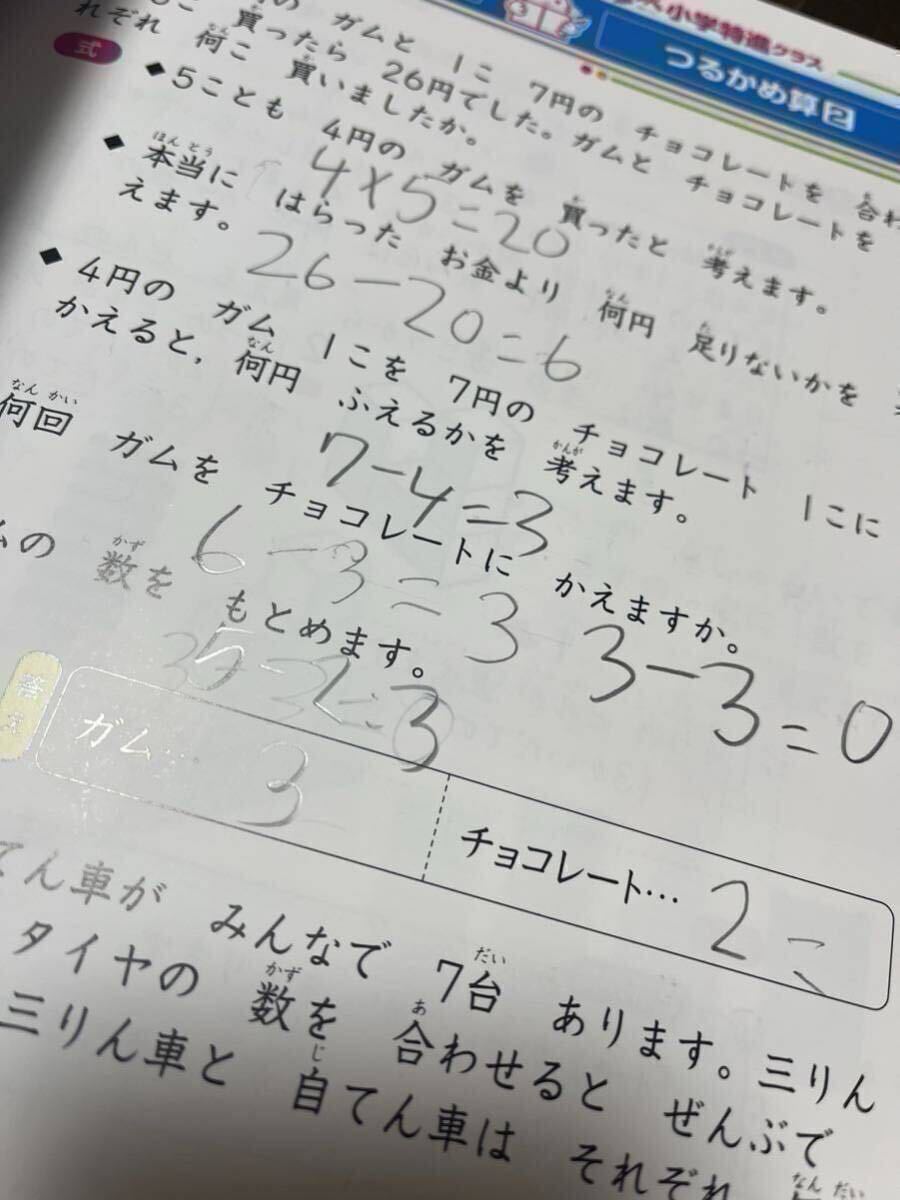 小学特進クラス
つるかめ算2
ガムと 1こ 7円の チョコレートを 合わ
買ったら 26円でした。ガムと チョコレートを
れぞれ 何こ 買いましたか。
式
◆5ことも 4円の ガムを 買ったと 考えます。
4×5=20
◆本当に はらった お金より 何円 足りないかを
えます。
26-20=6
◆4円の ガム 1こを 7円の チョコレート 1こに
かえると,何円 ふえるかを 考えます。
7-4=3
何回 ガムを チョコレートに かえますか。
6-3=3 3-3=0
ムの 数を もとめます。
5-2=3
答え
ガム… 3
チョコレート… 2
てん車が みんなで 7台 あります。三りん
タイヤの 数を 合わせると ぜんぶで
三りん車と 自てん車は それぞれ